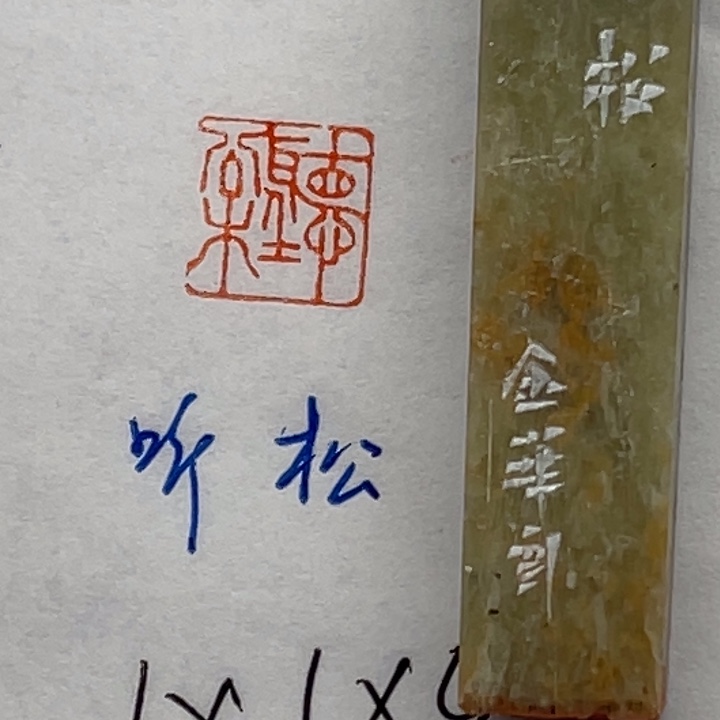 聽松
听松
松
金華